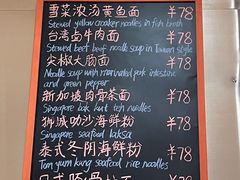 雪菜浓汤黄鱼面 ¥78
Stewed yellow croaker noodles in fish broth
台湾卤牛肉面 ¥78
Stewed beef beef noodle soup in Taiwan style
尖椒大肠面 ¥78
Noodle soup with marinated pork intestine
and green pepper
新加坡肉骨茶面 ¥78
Singapore bak kut teh noodles
狮城叻沙海鲜粉 ¥78
Singapore seafood laksa
泰式冬阴海鲜粉 ¥78
Tom yum kung seafood rice noodles
¥78